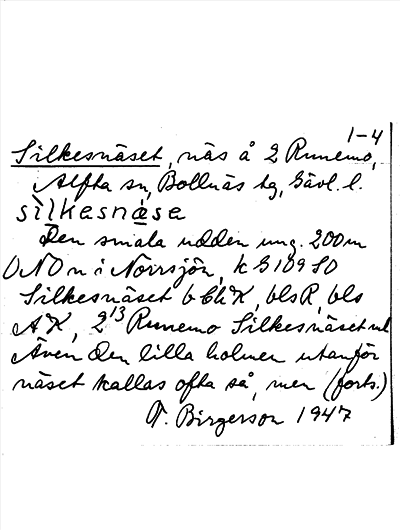 1-4
Silkesnäset, näs å 2 Runemo,
Alfta sn, Bollnäs tg, Gävl. l.
silkesnæse
Den smala udden ung. 200 m
ONO n i Norrsjön, k G 109 SO
Silkesnäset b Ch K, bls R, bls
A K, 2 13 Runemo Silkesnäset ul
Även den lilla holmen utanför
näset kallas ofta så, men (forts.)
Birgerson 1947